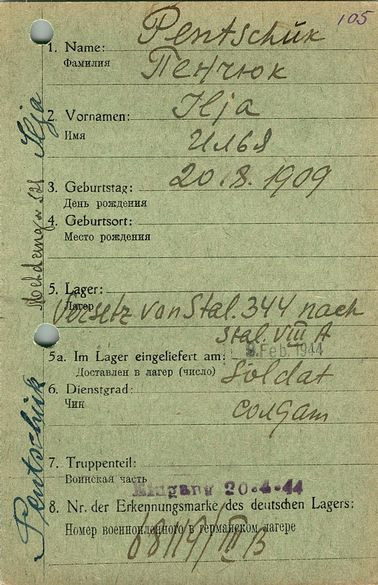 105
1. Name: Pentschük
Фамилия Пенчюк
2. Vornamen: Ilja
Имя Илья
3. Geburtstag: 20.8.1909
День рождения
4. Geburtsort:
Место рождения
5. Lager:
Лагерь
Versetz von Stal. 344 nach
Stal. VIII A
5a. Im Lager eingeliefert am: Feb. 1944
Доставлен в лагер (число)
6. Dienstgrad: Soldat
Чин солдат
7. Truppenteil:
Воинская часть
Eingang 20-4-44
8. Nr. der Erkennungsmarke des deutschen Lagers:
Номер военнопленного в германском лагере
Pentschük
Meldung
Ilja